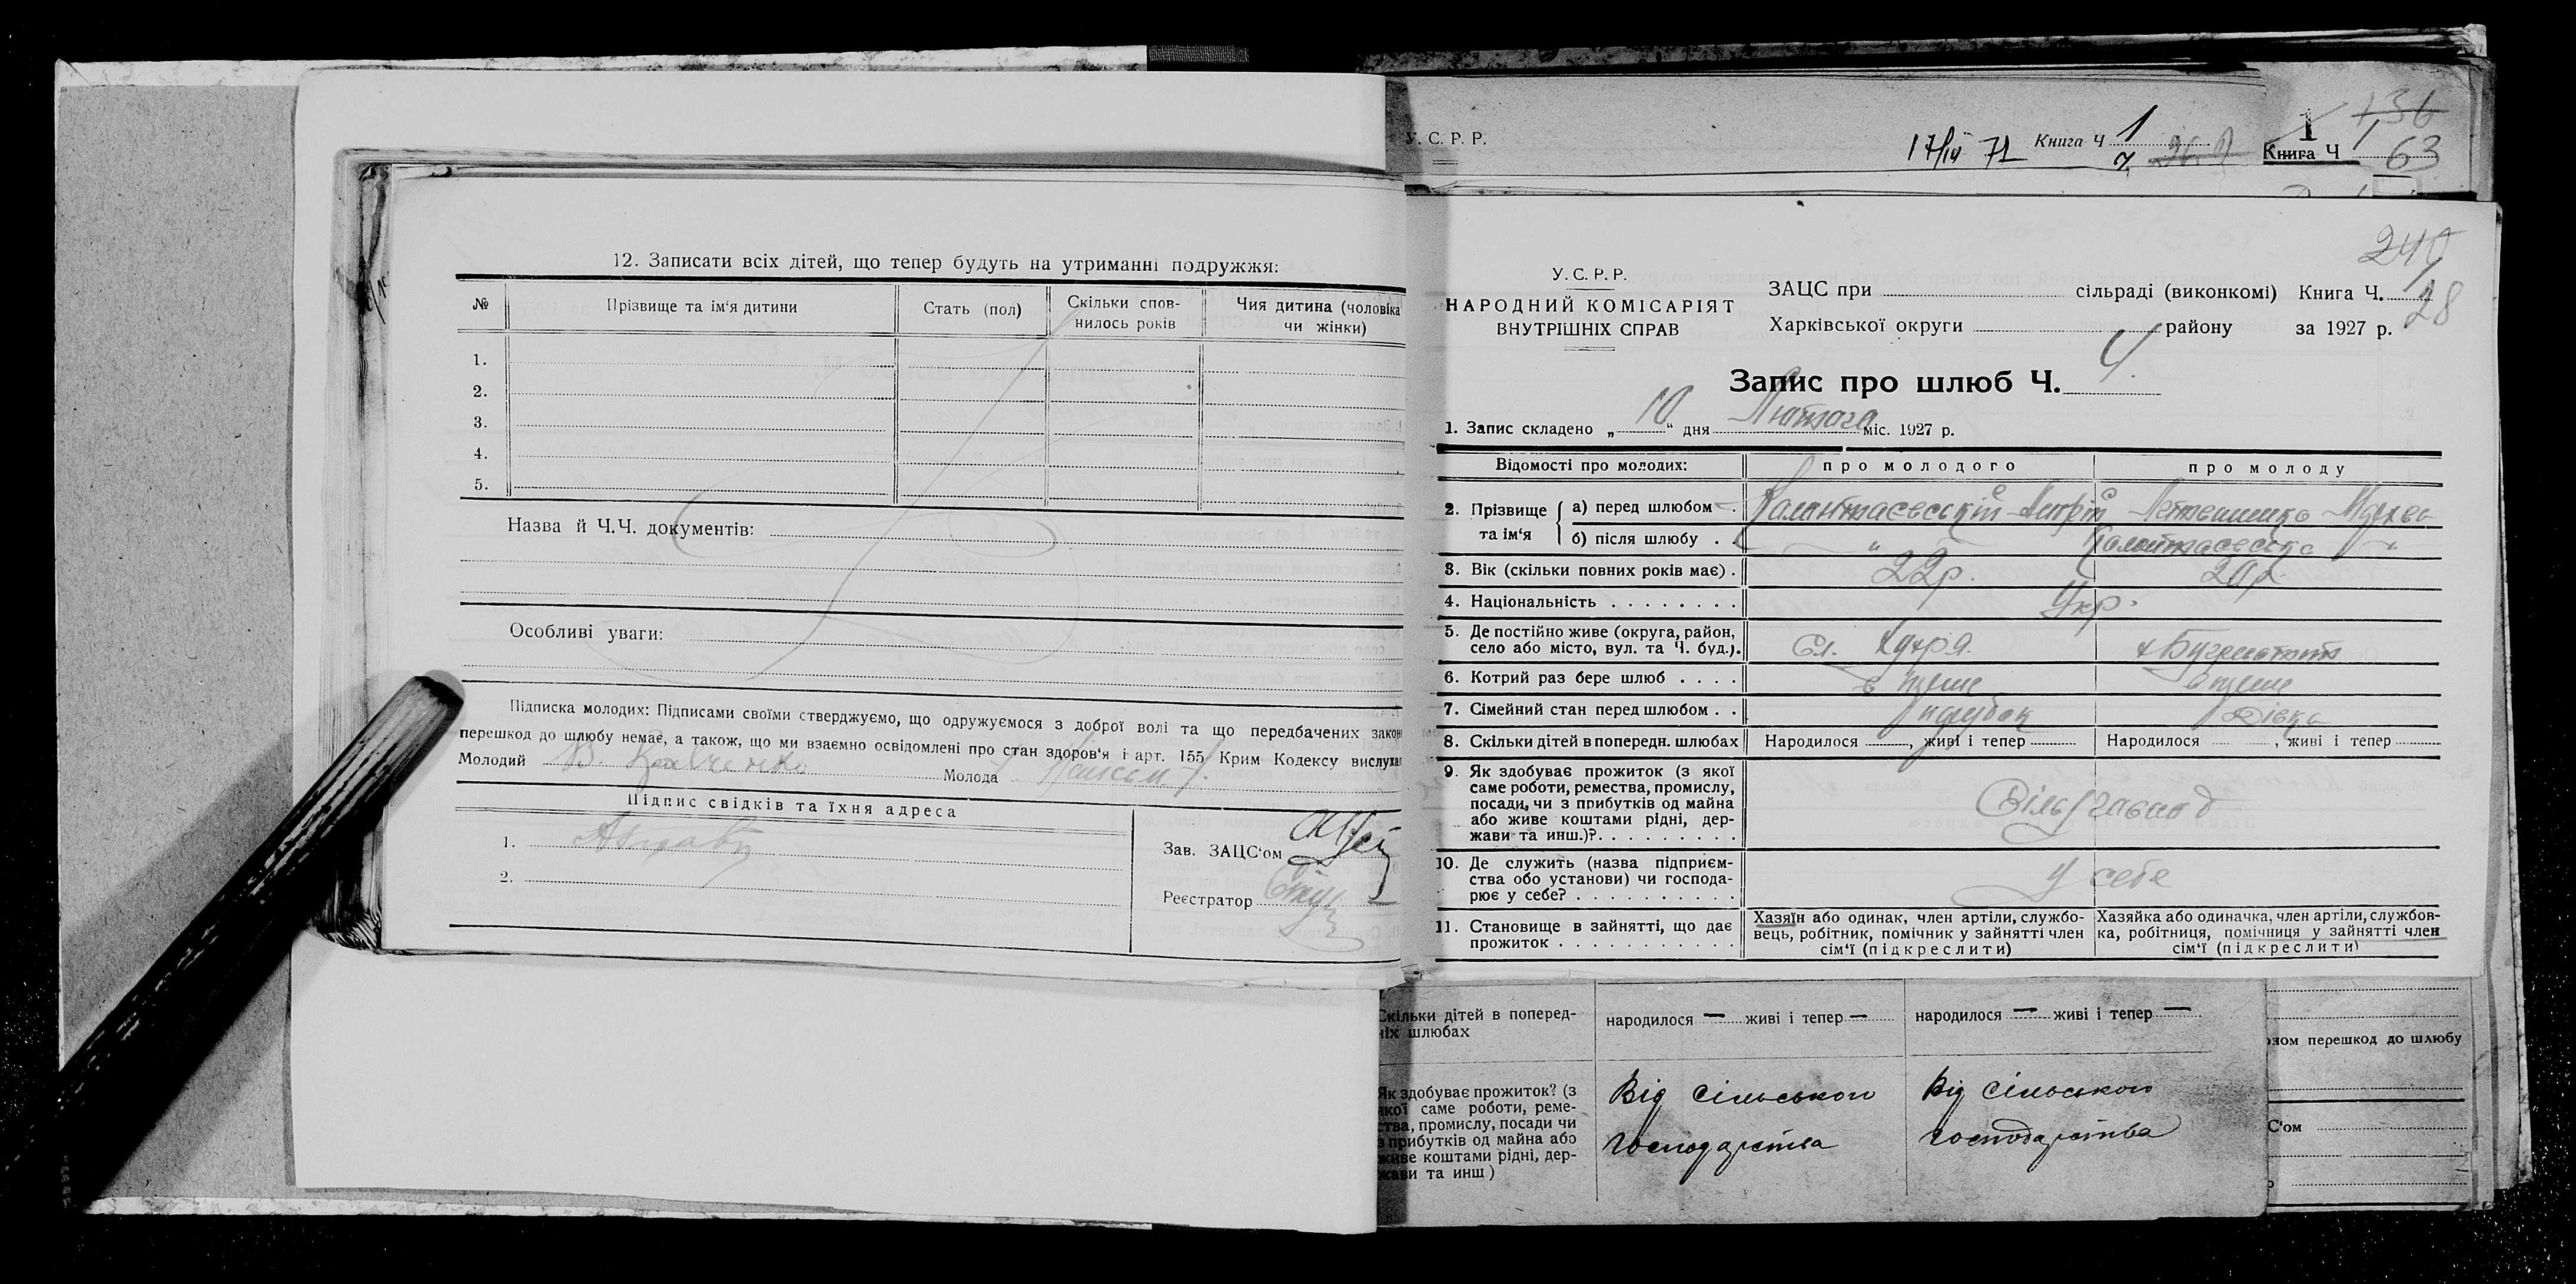 12. Записати всіх дітей, що тепер будуть на утриманні подружжя:
№ Прізвище та ім'я дитини Стать (пол) Скільки спов-нилось років Чия дитина (чоловіка чи жінки)
1.
2.
3.
4.
5.
Назва й Ч.Ч. документів:
Особливі уваги:
Підписка молодих: Підписами своїми стверджуємо, що одружуємося з доброї волі та що передбачених закон
перешкод до шлюбу немає, а також, що ми взаємно освідомлені про стан здоров'я і арт. 155 Крим Кодексу вислуха
Молодий В. Кравченко Молода
Підпис свідків та їхня адреса
1.
2.
Зав. ЗАЦС'ом
Реєстратор
У. С. Р. Р.
17/IV 71 Книга Ч 1
Книга Ч 1
136
63
240
У. С. Р. Р.
НАРОДНИЙ КОМІСАРІЯТ
ВНУТРІШНІХ СПРАВ
ЗАЦС при сільраді (виконкомі) Книга Ч. 1
Харківської округи району за 1927 р.
28
Запис про шлюб Ч. 4.
1. Запис складено „10" дня Лютого міс. 1927 р.
Відомості про молодих: про молодого про молоду
2. Прізвище та ім'я
а) перед шлюбом
б) після шлюбу . . "
3. Вік (скільки повних років має) . 22р. 20р.
4. Національність . . . . . . . . Укр.
5. Де постійно живе (округа, район,
село або місто, вул. та Ч. буд.).
6. Котрий раз бере шлюб . . . .
7. Сімейний стан перед шлюбом . . парубок Дівка
8. Скільки дітей в попередн. шлюбах Народилося , живі і тепер Народилося , живі і тепер
9. Як здобуває прожиток (з якої
саме роботи, ремества, промислу,
посади, чи з прибутків од майна
або живе коштами рідні, дер-
жави та инш.)? . . . . . . . . .
10. Де служить (назва підприєм-
ства обо установи) чи господа-
рює у себе? . . . . . . . . . . у себе
11. Становище в зайнятті, що дає
прожиток . . . . . . . . . . .
Хазяїн або одинак, член артіли, службо-
вець, робітник, помічник у зайнятті член
сім'ї (підкреслити)
Хазяйка або одиначка, член артіли, службов-
ка, робітниця, помічниця у зайнятті член
сім'ї (підкреслити)
Скільки дітей в поперед-
ніх шлюбах
народилося — живі і тепер —
народилося — живі і тепер —
Як здобуває прожиток? (з
якої саме роботи, реме-
ства, промислу, посади чи
з прибутків од майна або
живе коштами рідні, дер-
жави та инш)
Від сільського
господарства
Від сільського
господарства
ном перешкод до шлюбу
С'ом